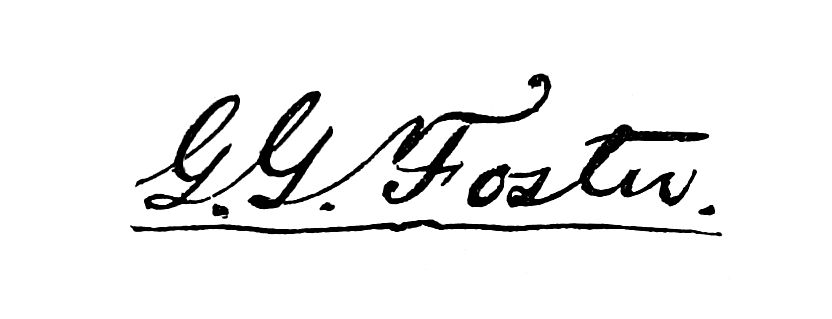 G. G. Foster.